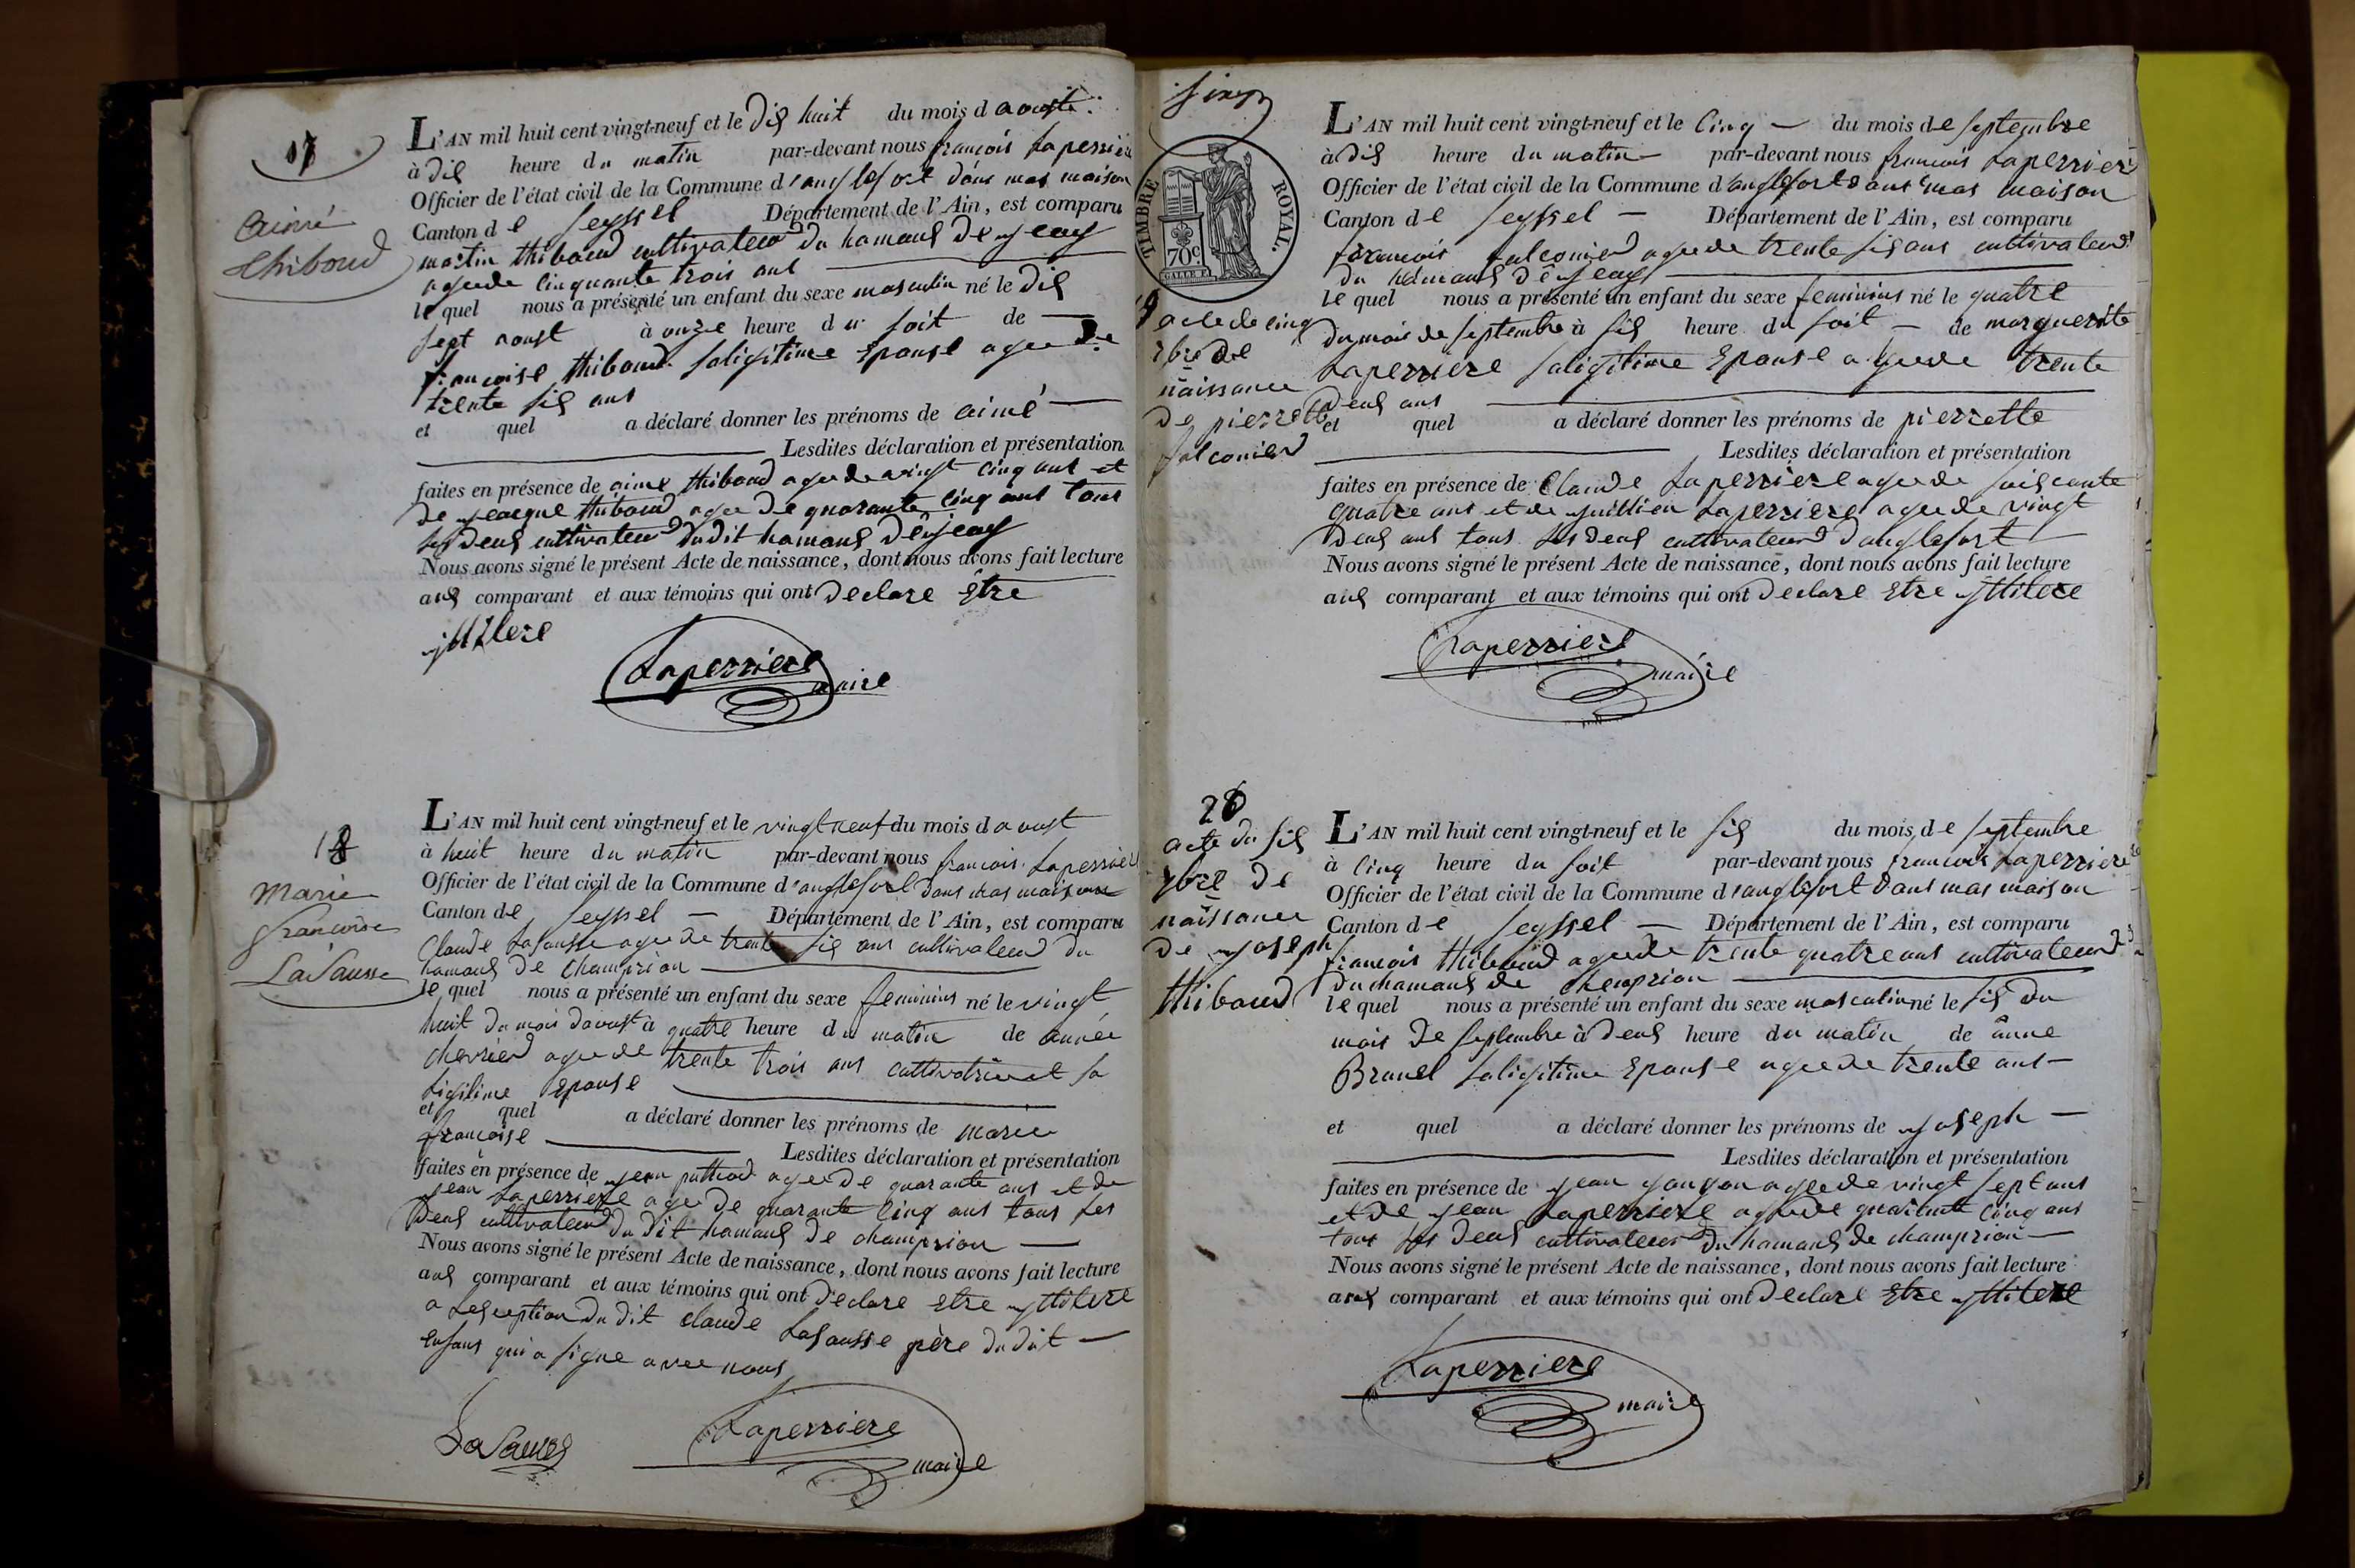 17
Aimé
Thiboud
L'AN mil huit cent vingt-neuf et le dis huit du mois d aoust
à dis heure du matin par-devant nous francois Laperriere
Officier de l'état civil de la Commune d'anglefort dans mas maison
Canton de Seyssel Département de l'Ain, est comparu
martin thiboud cultivateur du hamaus de jeay
agee de cinquante trois ans
le quel nous a présenté un enfant du sexe masculin né le dis
sept aoust à onze heure du soit de
francoise thiboud saligitime Epouse agee de
trente sis ans
et quel a déclaré donner les prénoms de aimé
Lesdites déclaration et présentation
faites en présence de aime thiboud agee de vingt cinq ans et
de jeacque thiboud agee de quarante cinq ans tous
les deus cultivateur dudit hamaus de jeay
Nous avons signé le présent Acte de naissance, dont nous avons fait lecture
aus comparant et aux témoins qui ont declare Etre
jttilere
Laperriere maire
18
Marie
Francoise
LaSausse
L'AN mil huit cent vingt-neuf et le vingt neuf du mois d aoust
à huit heure du matin par-devant nous francois Laperriere
Officier de l'état civil de la Commune d'anglefort dans mas maison
Canton de Seyssel Département de l'Ain, est comparu
Claude Lasausse agee de trente sis ans cultivateur du
hamaus de champrion
le quel nous a présenté un enfant du sexe feminins né le vingt
huit du mois daoust à quatre heure du matin de année
chevrier agee de trente trois ans cultivatrice et sa
ligitime Epouse
et quel a déclaré donner les prénoms de marie
francoise
Lesdites déclaration et présentation
faites en présence de jean agee de quarante ans et de
jean Laperriere agee de quarante cinq ans tous les
deus cultivateur du dit hamaus de champrion
Nous avons signé le présent Acte de naissance, dont nous avons fait lecture
aus comparant et aux témoins qui ont declare Etre jttilere
a Lesception du dit claude Lasausse père dudit
enfans qui a signe avec nous
LaSausse
Laperriere maire
TIMBRE ROYAL.
70c
19
acte de cinq
7bre de
naissance
de pierrette
falconier
L'AN mil huit cent vingt-neuf et le cinq du mois de septembre
à dis heure du matin par-devant nous francois Laperriere
Officier de l'état civil de la Commune d'anglefort dans mas maison
Canton de Seyssel Département de l'Ain, est comparu
francois falconier agee de trente sis ans cultivateur
du hamaus de jeay
le quel nous a présenté un enfant du sexe feminins né le quatre
du mois de septembre à sis heure du soit de marguerite
Laperriere saligitime Epouse agee de trente
deus ans
et quel a déclaré donner les prénoms de pierrette
Lesdites déclaration et présentation
faites en présence de Claude Laperriere agee de soiscante
quatre ans et de juillien Laperriere agee de vingt
deus ans tous les deus cultivateur d'anglefort
Nous avons signé le présent Acte de naissance, dont nous avons fait lecture
aus comparant et aux témoins qui ont declare Etre jttilere
Laperriere maire
20
acte du sis
7bre de
naissance
de joseph
thiboud
L'AN mil huit cent vingt-neuf et le sis du mois de septembre
à cinq heure du soit par-devant nous francois Laperriere
Officier de l'état civil de la Commune d'anglefort dans mas maison
Canton de Seyssel Département de l'Ain, est comparu
francois thiboud agee de trente quatre ans cultivateur
du hamaus de chemprion
le quel nous a présenté un enfant du sexe masculin né le sis du
mois de septembre à deus heure du matin de anne
Brunel saligitime Epouse agee de trente ans
et quel a déclaré donner les prénoms de joseph
Lesdites déclaration et présentation
faites en présence de jean agee de vingt sept ans
et de jean Laperriere agee de quarante cinq ans
tous les deus cultivateur du hamaus de champrion
Nous avons signé le présent Acte de naissance, dont nous avons fait lecture
aus comparant et aux témoins qui ont declare Etre jttilere
Laperriere maire